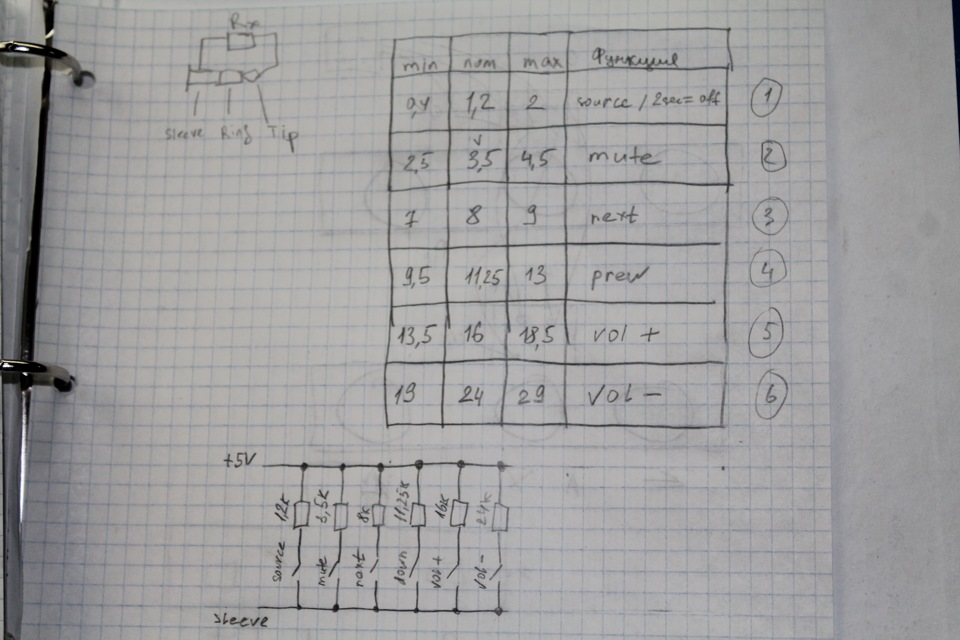 Rx
sleeve Ring Tip
min nom max Функция
0,4 1,2 2 source / 2sec = off ①
2,5 3,5 4,5 mute ②
7 8 9 next ③
9,5 11,25 13 prew ④
13,5 16 18,5 vol + ⑤
19 24 29 vol - ⑥
+5V
1,2k 3,5k 8k 11,25k 16k 24k
source mute next down vol+ vol-
sleeve